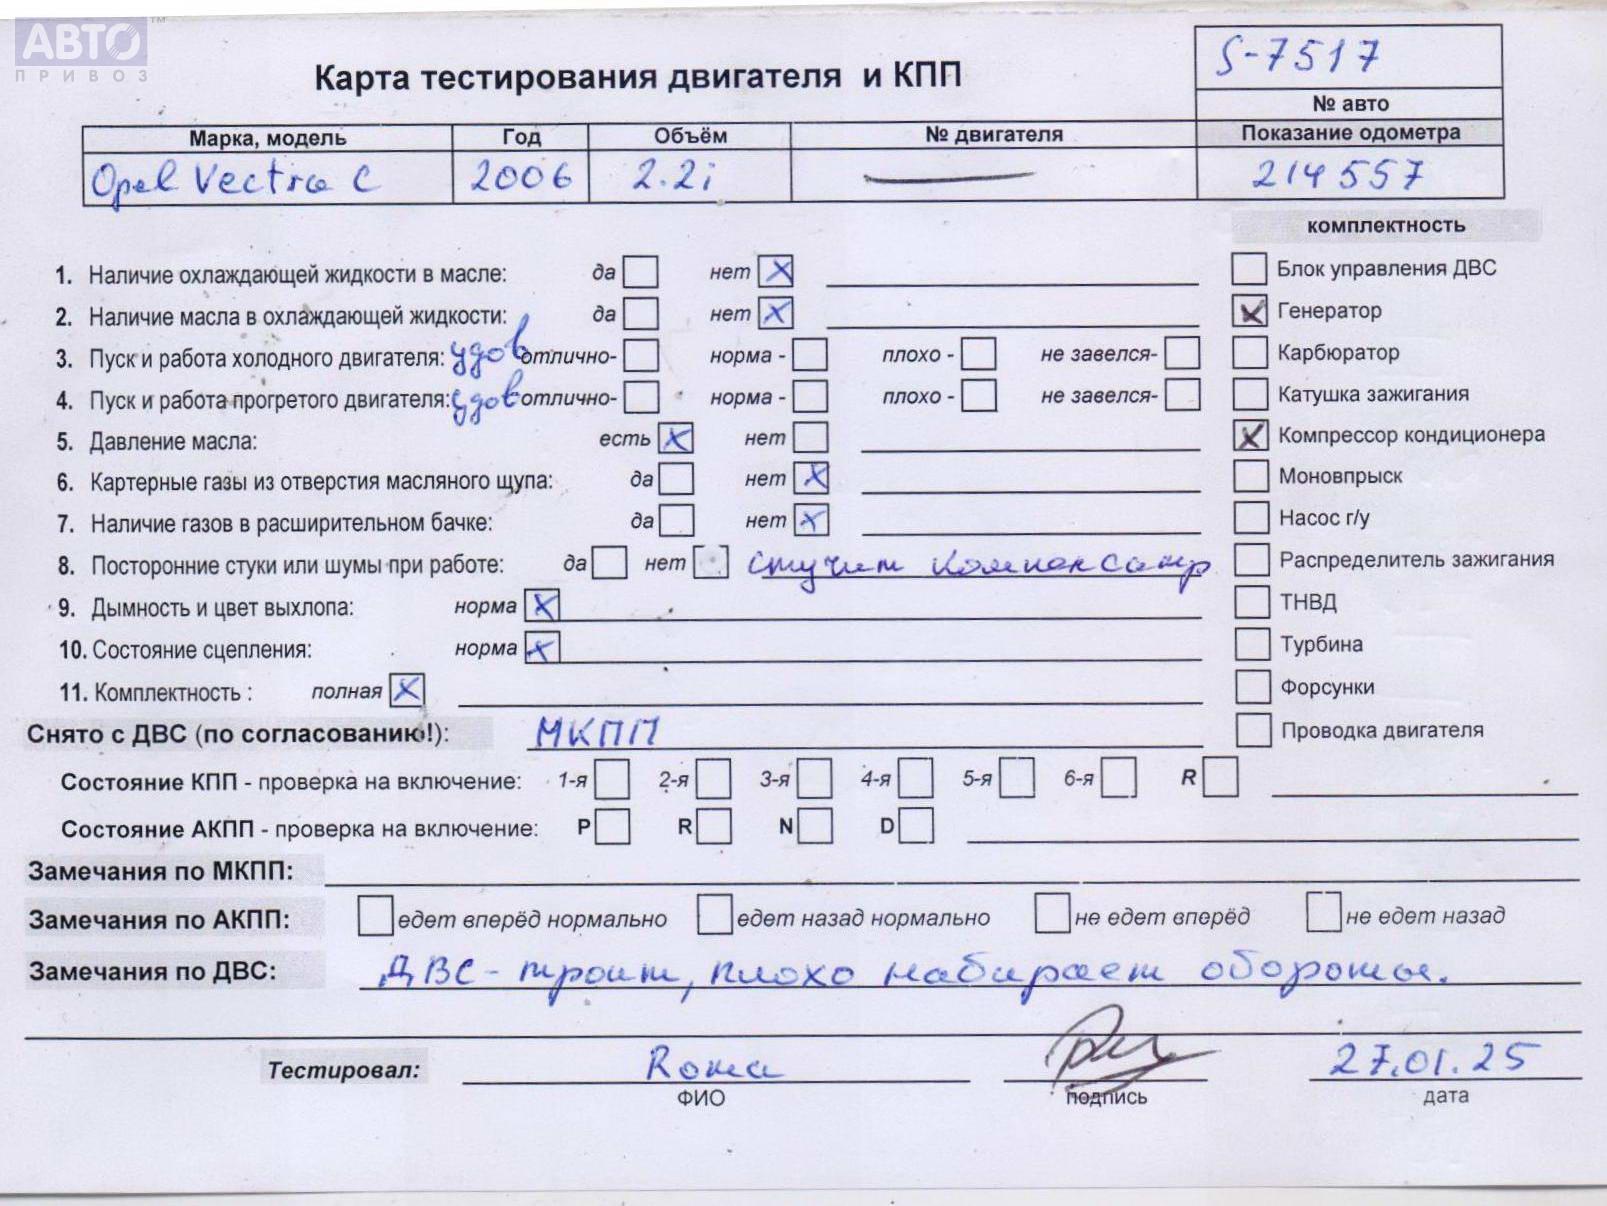 АВТО™
ПРИВОЗ
Карта тестирования двигателя и КПП
S-7517
№ авто
Марка, модель Год Объём № двигателя Показание одометра
Opel Vectra C 2006 2.2i — 214557
комплектность
1. Наличие охлаждающей жидкости в масле: да нет X
Блок управления ДВС
2. Наличие масла в охлаждающей жидкости: да нет X
X Генератор
3. Пуск и работа холодного двигателя: удов отлично- норма - плохо - не завелся-
Карбюратор
4. Пуск и работа прогретого двигателя: удов отлично- норма - плохо - не завелся-
Катушка зажигания
5. Давление масла: есть X нет
X Компрессор кондиционера
6. Картерные газы из отверстия масляного щупа: да нет X
Моновпрыск
7. Наличие газов в расширительном бачке: да нет X
Насос г/у
8. Посторонние стуки или шумы при работе: да нет стучит компенсатр
Распределитель зажигания
9. Дымность и цвет выхлопа: норма X
ТНВД
10. Состояние сцепления: норма X
Турбина
11. Комплектность : полная X
Форсунки
Снято с ДВС (по согласованию!): МКПП
Проводка двигателя
Состояние КПП - проверка на включение: 1-я 2-я 3-я 4-я 5-я 6-я R
Состояние АКПП - проверка на включение: P R N D
Замечания по МКПП:
Замечания по АКПП: едет вперёд нормально едет назад нормально не едет вперёд не едет назад
Замечания по ДВС: ДВС - троит, плохо набирает обороты.
Тестировал: Рома 27.01.25
ФИО подпись дата